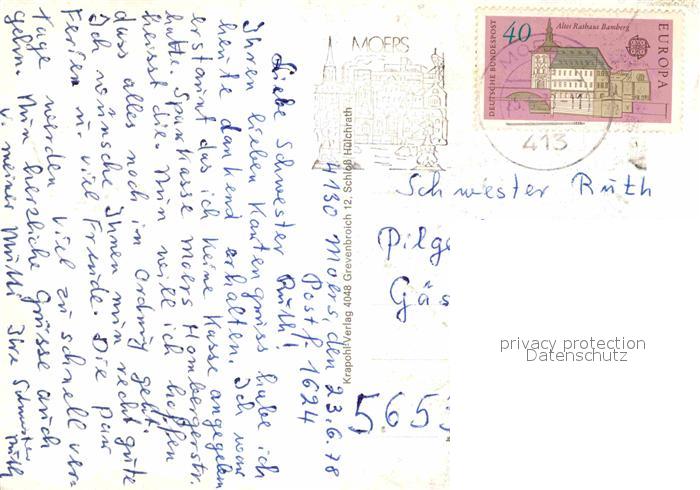 4130 Moers, den 23.6.78
Postf. 1624
Liebe Schwester Ruth!
Ihren lieben Kartengruss habe ich
heute dankend erhalten. Ich war
erstaunt das ich keine Kasse angegeben
hatte. Sparkasse Moers Hombergerstr.
heisst die. Nun will ich hoffen
dass alles noch in Ordnung geht.
Ich wünsche Ihnen nun recht gute
Ferien u. viel Freude. Die paar
Tage werden viel zu schnell ver-
gehn. Nun herzliche Grüsse auch
v. meiner Mutti Ihre Schwester
Ruth
Krapohl-Verlag 4048 Grevenbroich 12, Schloß Hülchrath
MOERS
413
DEUTSCHE BUNDESPOST
40
Altes Rathaus Bamberg
EUROPA
Schwester Ruth
Pilge
Gäs
565
privacy protection
Datenschutz